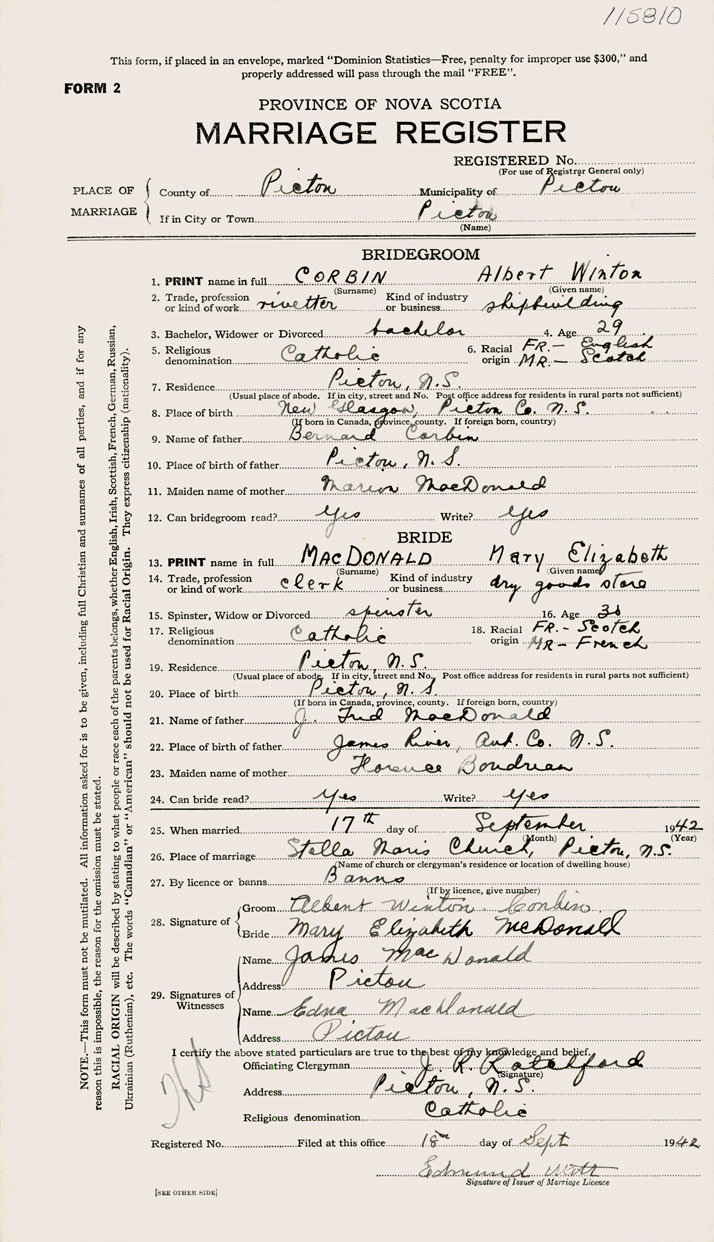 115810
This form, if placed in an envelope, marked "Dominion Statistics—Free, penalty for improper use $300," and
properly addressed will pass through the mail "FREE".
FORM 2
PROVINCE OF NOVA SCOTIA
MARRIAGE REGISTER
REGISTERED No.
(For use of Registrar General only)
PLACE OF MARRIAGE
County of Pictou Municipality of Pictou
If in City or Town Pictou
(Name)
BRIDEGROOM
1. PRINT name in full CORBIN Albert Winton
(Surname) (Given name)
2. Trade, profession or kind of work rivetter Kind of industry or business shipbuilding
3. Bachelor, Widower or Divorced bachelor 4. Age 29
5. Religious denomination Catholic 6. Racial origin FR.— English MR.— Scotch
7. Residence Pictou, N.S.
(Usual place of abode. If in city, street and No. Post office address for residents in rural parts not sufficient)
8. Place of birth New Glasgow, Pictou Co. N.S.
(If born in Canada, province, county. If foreign born, country)
9. Name of father Bernard Corbin
10. Place of birth of father Pictou, N.S.
11. Maiden name of mother Marion MacDonald
12. Can bridegroom read? yes Write? yes
BRIDE
13. PRINT name in full MACDONALD Mary Elizabeth
(Surname) (Given name)
14. Trade, profession or kind of work clerk Kind of industry or business dry goods store
15. Spinster, Widow or Divorced spinster 16. Age
17. Religious denomination Catholic 18. Racial origin FR.- Scotch MR- French
19. Residence Pictou, N.S.
(Usual place of abode. If in city, street and No. Post office address for residents in rural parts not sufficient)
20. Place of birth Pictou, N.S.
(If born in Canada, province, county. If foreign born, country)
21. Name of father J. Fred MacDonald
22. Place of birth of father James River, Ant. Co. N.S.
23. Maiden name of mother Florence Boudreau
24. Can bride read? yes Write? yes
25. When married 17th day of September 1942
(Month) (Year)
26. Place of marriage Stella Maris Church, Pictou, N.S.
(Name of church or clergyman's residence or location of dwelling house)
27. By licence or banns Banns
(If by licence, give number)
28. Signature of
Groom Albert Winton Corbin
Bride Mary Elizabeth McDonald
29. Signatures of Witnesses
Name James MacDonald
Address Pictou
Name Edna MacDonald
Address Pictou
I certify the above stated particulars are true to the best of my knowledge and belief.
Officiating Clergyman J. R. Ratchford
(Signature)
Address Pictou, N.S.
Religious denomination Catholic
Registered No. Filed at this office 18th day of Sept 1942
Edmund
Signature of Issuer of Marriage Licence
[SEE OTHER SIDE]
NOTE.—This form must not be mutilated. All information asked for is to be given, including full Christian and surnames of all parties, and if for any
reason this is impossible, the reason for the omission must be stated.
RACIAL ORIGIN will be described by stating to what people or race each of the parents belongs, whether English, Irish, Scottish, French, German, Russian,
Ukrainian (Ruthenian), etc. The words "Canadian" or "American" should not be used for Racial Origin. They express citizenship (nationality).